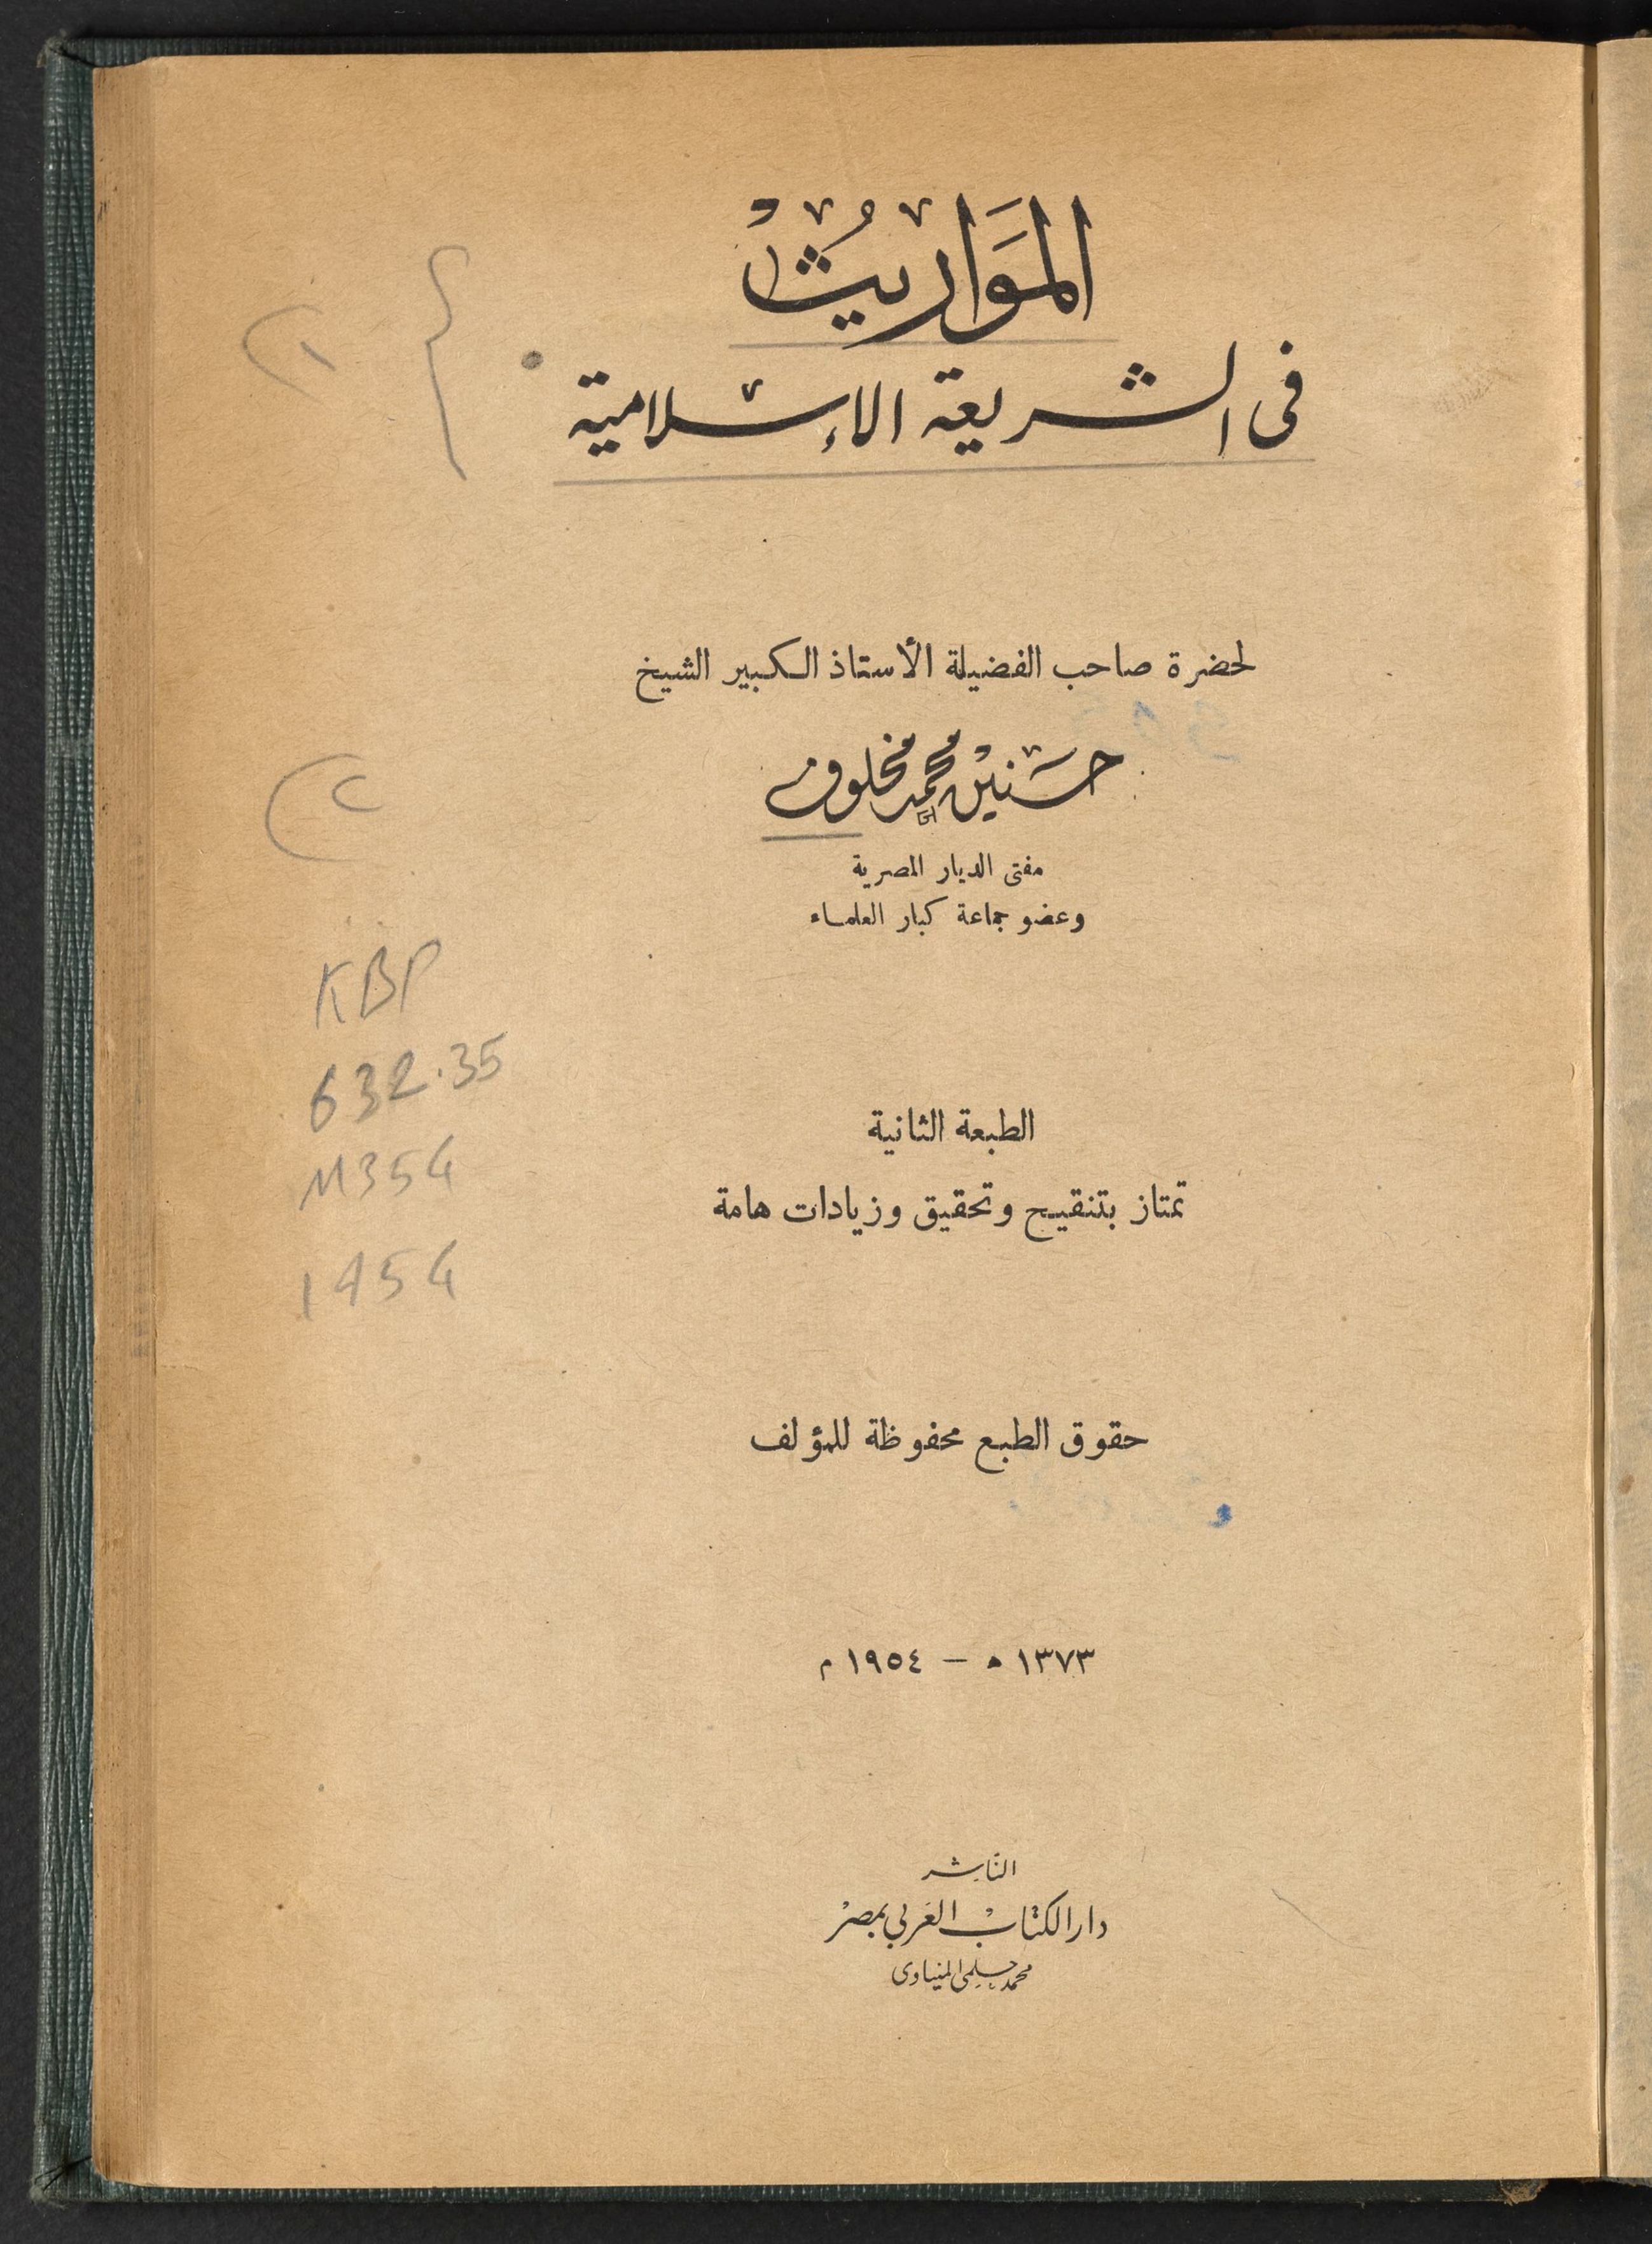 المَوَاريثُ
فى الشريعة الإسلامية
لحضرة صاحب الفضيلة الأستاذ الكبير الشيخ
حسنين محمد مخلوف
مفتى الديار المصرية
وعضو جماعة كبار العلماء
KBP
632.35
M354
1954
الطبعة الثانية
تمتاز بتنقيح وتحقيق وزيادات هامة
حقوق الطبع محفوظة للمؤلف
١٣٧٣ ه — ١٩٥٤ م
الناشر
دار الكتاب العربي بمصر
محمد حلمى المنياوى